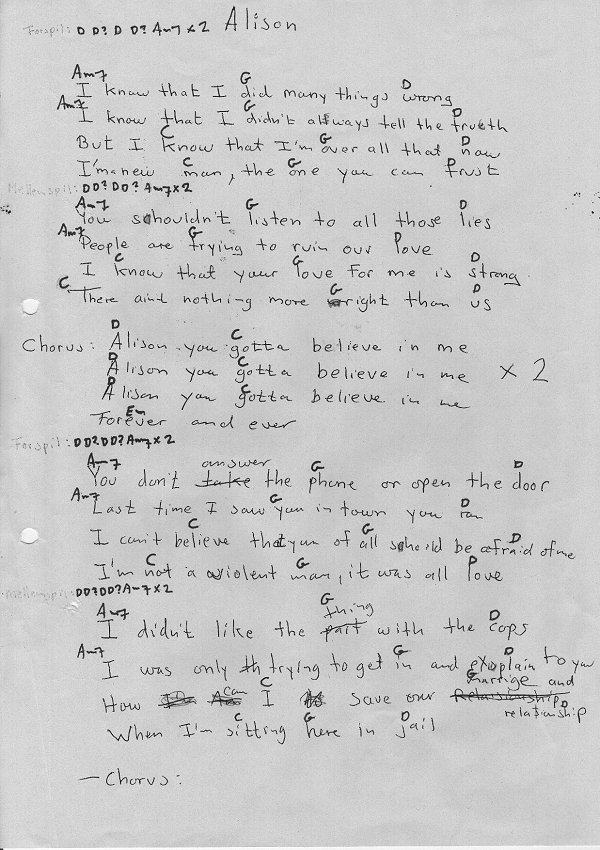 Forspil: D D? D D? Am7 x 2 Alison
Am7 G D
I know that I did many things wrong
Am7 G D
I know that I didn't always tell the trueth
C G D
But I know that I'm over all that now
C G D
I'm a new man, the one you can trust
Mellemspil: D D? D D? Am7 x 2
Am7 G D
You schouldn't listen to all those lies
Am7 G D
People are trying to ruin our love
C G D
I know that your love for me is strong
C G D
There aint nothing more right than us
D C
Chorus: Alison you gotta believe in me
D C
Alison you gotta believe in me x 2
D C
Alison you gotta believe in me
Em
Forever and ever
Forspil: D D? D D? Am7 x 2
Am7 answer G D
You don't take the phone or open the door
Am7 G D
Last time I saw you in town you ran
C G D
I can't believe that you of all schould be afraid of me
C G D
I'm not a violent man, it was all love
Mellemspil: D D? D D? Am7 x 2
Am7 G thing D
I didn't like the part with the cops
Am7 G D
I was only trying to get in and explain to you
C can G marrige and
How I save our Relasionship D
relationship
C G D
When I'm sitting here in jail
— Chorus: